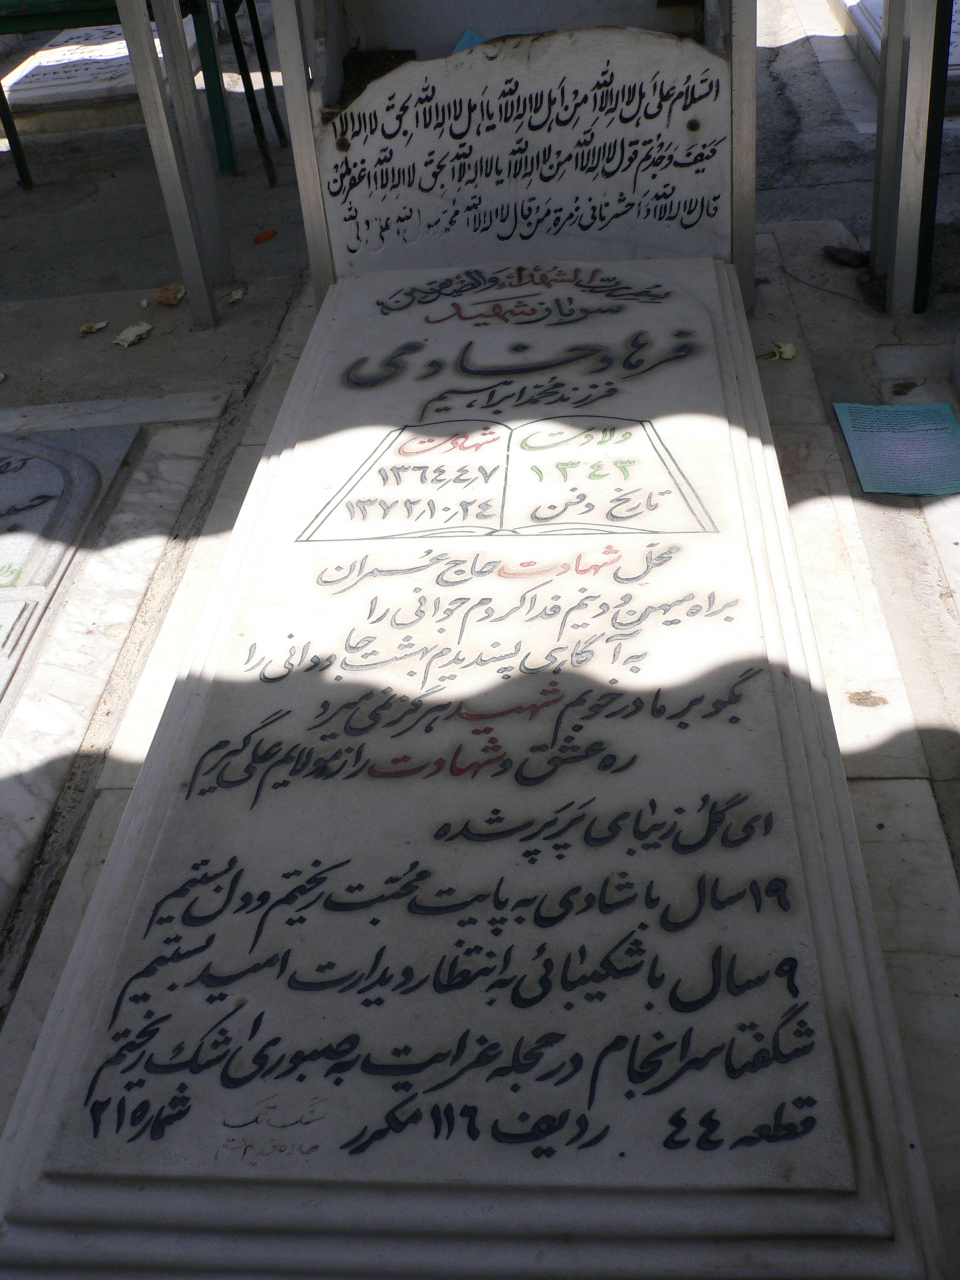 السَّلامُ عَلیٰ اَهلِ لا اِلهَ اِلَّا اللهُ مِنْ اَهلِ لا اِلهَ اِلَّا اللهُ یا اَهلَ لا اِلهَ اِلَّا اللهُ بِحَقِّ لا اِلهَ اِلَّا
کَیْفَ وَجَدْتُمْ قَوْلَ لا اِلهَ اِلَّا اللهُ مِنْ لا اِلهَ اِلَّا اللهُ یا لا اِلهَ اِلَّا اللهُ بِحَقِّ لا اِلهَ اِلَّا اللهُ اغْفِرْ لِمَنْ
قالَ لا اِلهَ اِلَّا اللهُ وَاحْشُرْنا فی زُمْرَةِ مَنْ قالَ لا اِلهَ اِلَّا اللهُ مُحَمَّد رَسُولُ اللهِ عَلی وَلیُّ الله
الشهداء والصدیقین
سرباز شهید
فرهاد خادمی
فرزند محمّد ابراهیم
ولادت شهادت
۱۳۴۳ ۱۳۶۴٫۴٫۷
تاریخ دفن ۱۳۷۲٫۱۰٫۲۴
محلّ شهادت حاج عُمران
براه میهن و دینم فدا کردم جوانی را
به آگاهی پسندیدم بهشت جاودانی را
بگو بر مادر خوبم شهید هرگز نمی میرد
ره عشق و شهادت را ز مولایم علی گیرم
ای گُلِ زیبای پَرپَر شده
۱۹ سال با شادی به پایت مُحبّت ریختیم و دل بستیم
۹ سال با شکیبائی به انتظار دیدارت امید بستیم
شگفتا سرانجام در حجله عزایت به صبوری اشک ریختم
قطعه ۴۴ ردیف ۱۱۶ مکرر شماره ۲۱
سنگ تک